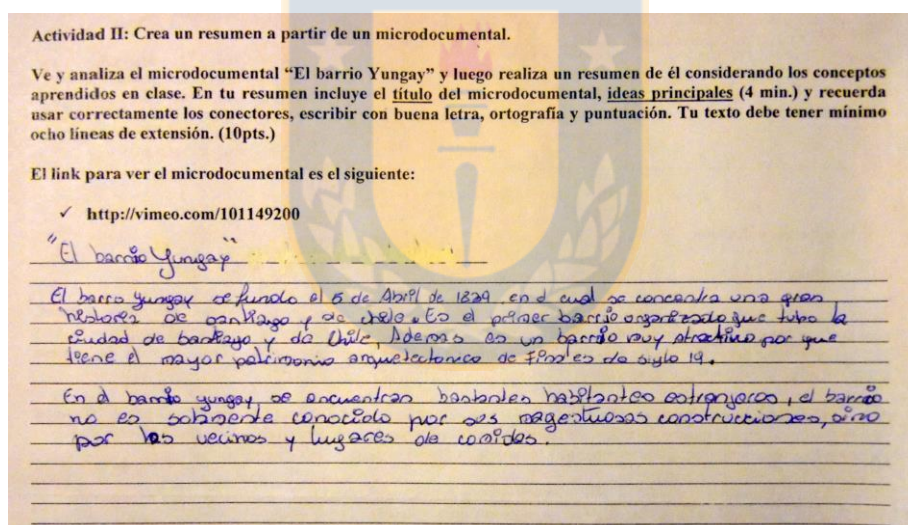 Actividad II: Crea un resumen a partir de un microdocumental.
Ve y analiza el microdocumental “El barrio Yungay” y luego realiza un resumen de él considerando los conceptos
aprendidos en clase. En tu resumen incluye el título del microdocumental, ideas principales (4 min.) y recuerda
usar correctamente los conectores, escribir con buena letra, ortografía y puntuación. Tu texto debe tener mínimo
ocho líneas de extensión. (10pts.)
El link para ver el microdocumental es el siguiente:
✓ http://vimeo.com/101149200
"El barrio Yungay"
El barro yungay se fundo el 5 de Abril de 1839 en el cual se concentra una gran
historia de santiago y de chile. Es el primer barrio organizado que tubo la
ciudad de santiago y de Chile, Ademas es un barrio muy atractivo por que
tiene el mayor patrimonio arquetectonico de fines de siglo 19.
En el barrio yungay se encuentran bastantes habitantes extranjeros, el barrio
no es solamente conocido por sus magestuosas construcciones, sino
por los vecinos y lugares de comidas.